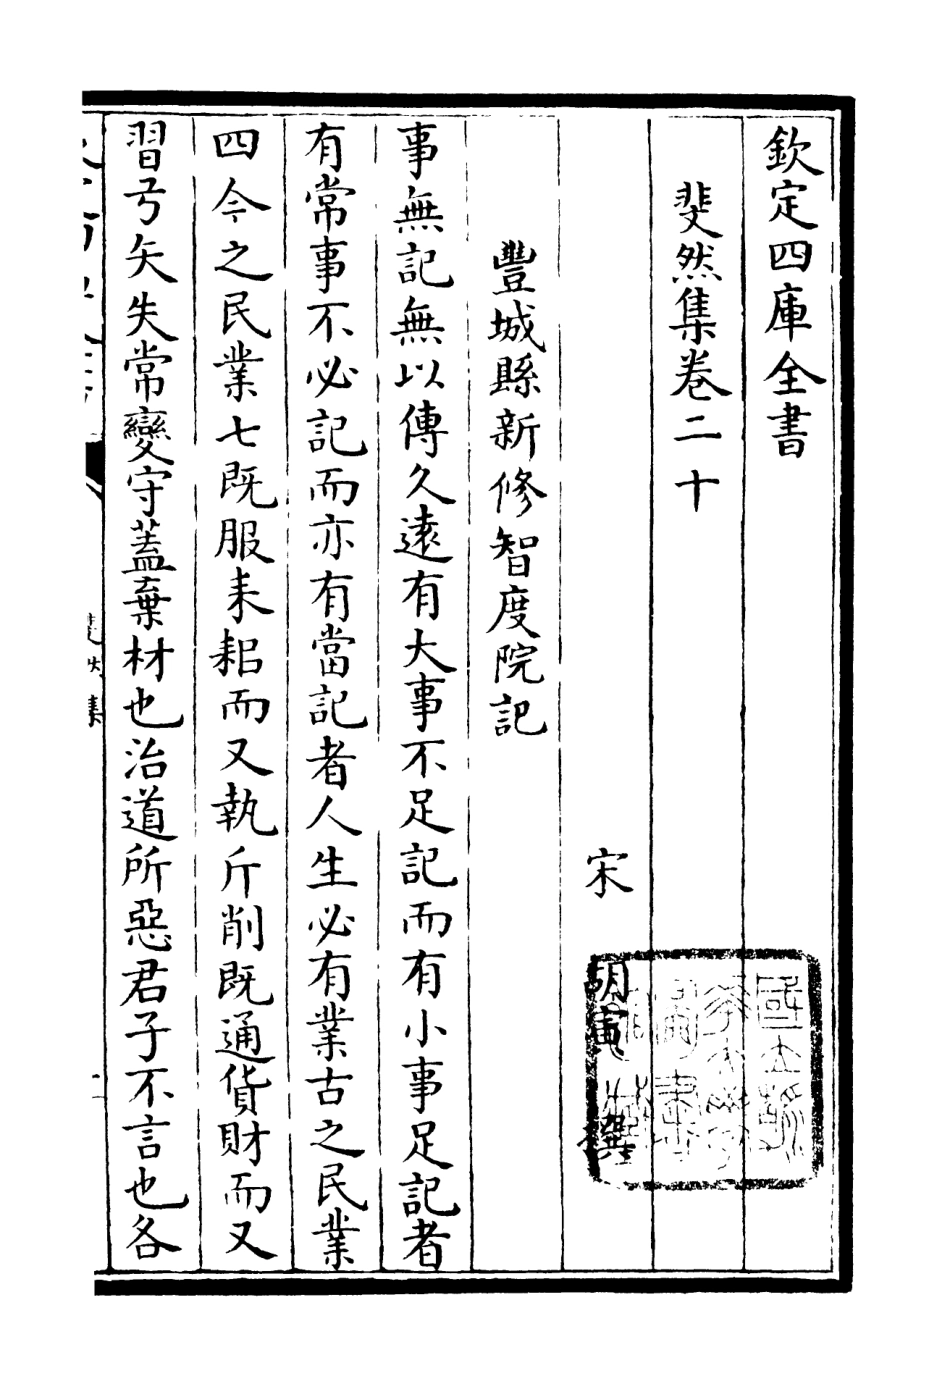 欽定四庫全書
斐然集卷二十
宋 胡寅 撰
豐城縣新修智度院記
事無記無以傳久逺有大事不足記而有小事足記者
有常事不必記而亦有當記者人生必有業古之民業
四今之民業七既服耒耜而又執斤削既通貨財而又
習弓矢失常變守蓋棄材也治道所惡君子不言也各